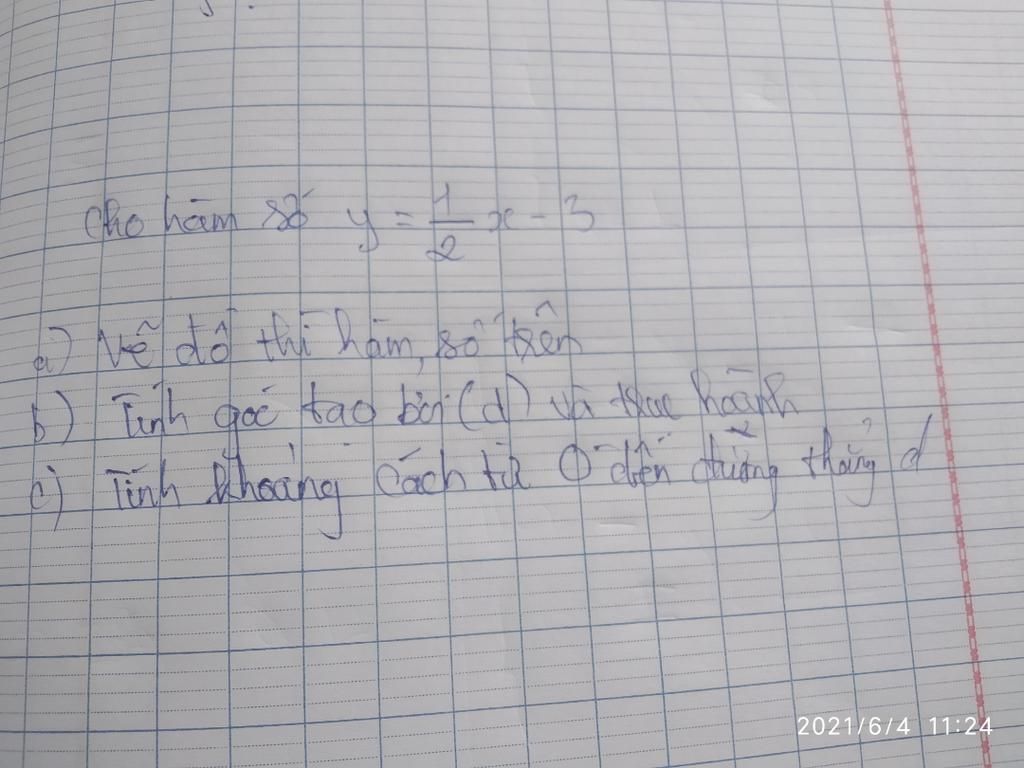 Cho hàm số y = 1/2 x - 3
a) Vẽ đồ thì hàm số trên
b) Tính góc tạo bởi (d) và trục hoành
c) Tính khoảng cách từ O đến đường thẳng d
2021/6/4 11:24